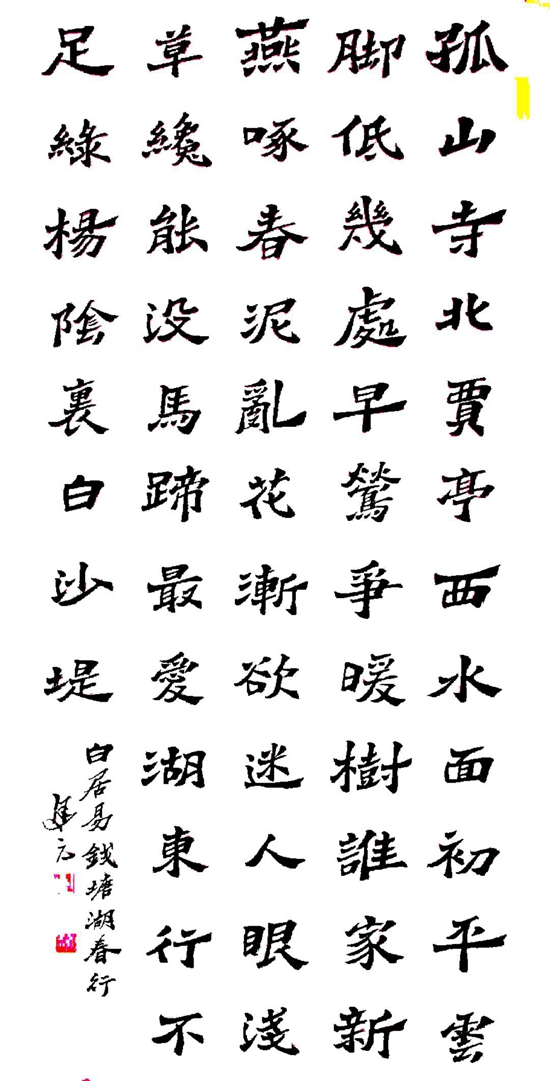 孤山寺北賈亭西水面初平雲
脚低幾處早鶯爭暖樹誰家新
燕啄春泥亂花漸欲迷人眼淺
草纔能没馬蹄最愛湖東行不
足綠楊陰裏白沙堤
白居易錢塘湖春行